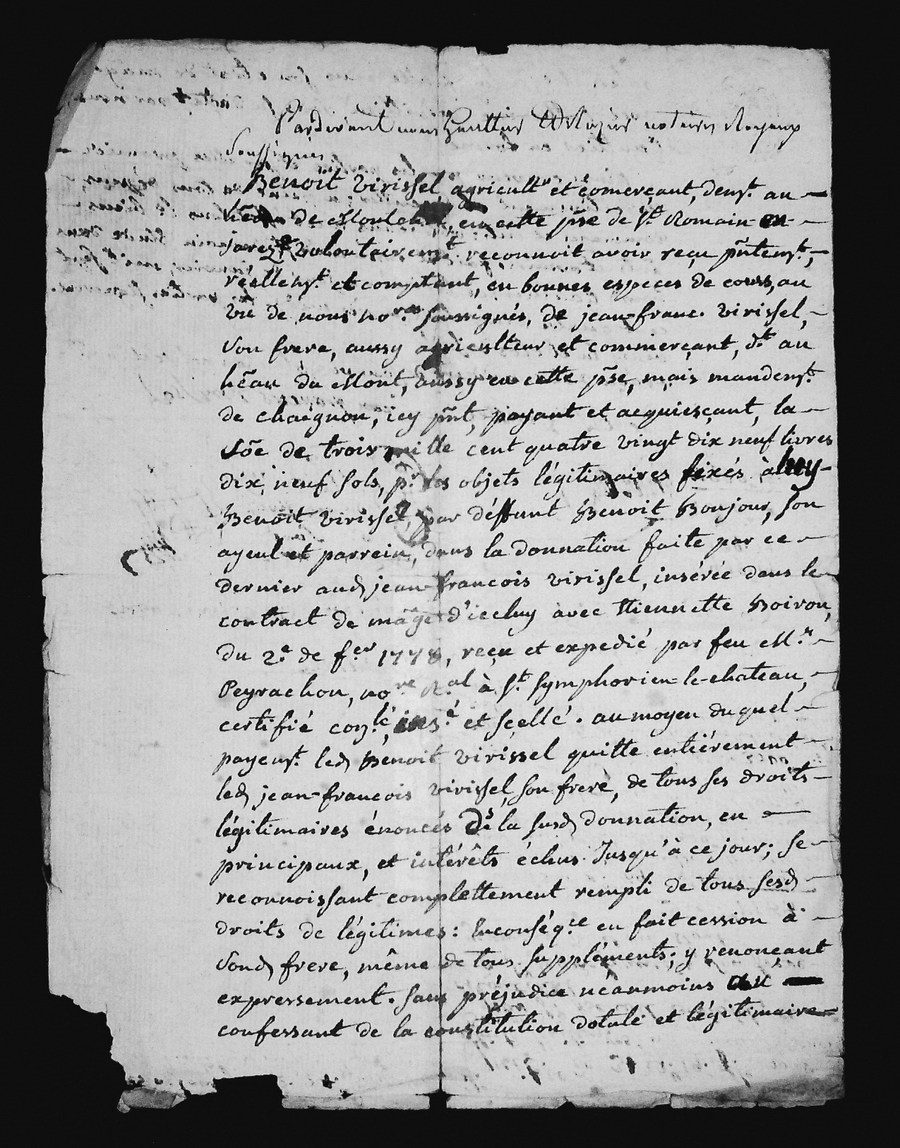 Pardevant nous Gaultier notaires Royaux
Soussignés
Benoit virissel agricultr et comerçant, demt. au
hëau de Moulet, en cette pss̃e de St. Romain en
jarest volontairemt. reconnoit avoir reçu pñtemt.,
réellemt. et comptant, en bonnes especes de cours, au
vû de nous nores. soussignés, de jean-franc. virissel,
son frere, aussy agriculteur et commerçant, dt. au
hëau du Mont, aussy en cette pss̃e, mais mandemt.
de chagnon, icy pñt, payant et acquiesçant, la
sõe de trois mille cent quatre vingt dix neuf livres
dix neuf sols, pr. les objets légitimaires fixés à luy
Benoit virissel, par déffunt Benoit Boujour, son
ayeul et parrein, dans la donnation faite par ce
dernier aud jean-francois virissel, insérée dans le
contract de mãge d'iceluy avec Etiennette Boiron,
du 2e. de fer. 1778, reçu et expedié par feu Me.
Peyrachon, nore. Ral. à St. symphorien-le-chateau,
certifié conlé, insé. et scellé. au moyen duquel
payemt. led Benoit virissel quitte entiérement
led jean-francois virissel, son frere, de tous ses droits
légitimaires énoncés ds la susd donnation, en
principaux, et intérêts échus Jusqu'à ce jour; se
reconnoissant complettement rempli de tous sesd
droits de légitimes: Enconséqce. en fait cession à
sond frere, même de tous suppléments; y renonçant
expressement. sans préjudice néanmoins au
confessant de la constitution dotale et légitimaire